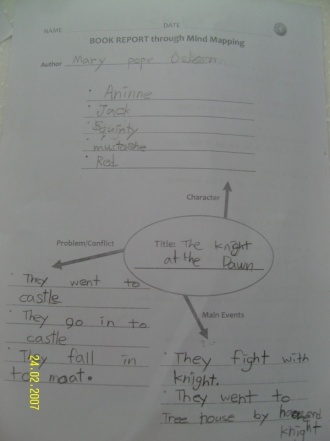 NAME DATE
BOOK REPORT through Mind Mapping
Author Mary pope Osborn
• Aninne
• Jack
• Squinty
• mustache
• Red
Character
Title: The knight
at the Dawn
Problem/Conflict
• They went to
castle
• They go in to
castle
• They fall in
to moat.
Main Events
• They fight with
knight.
• They went to
Tree house by and
knight
24.02.2007